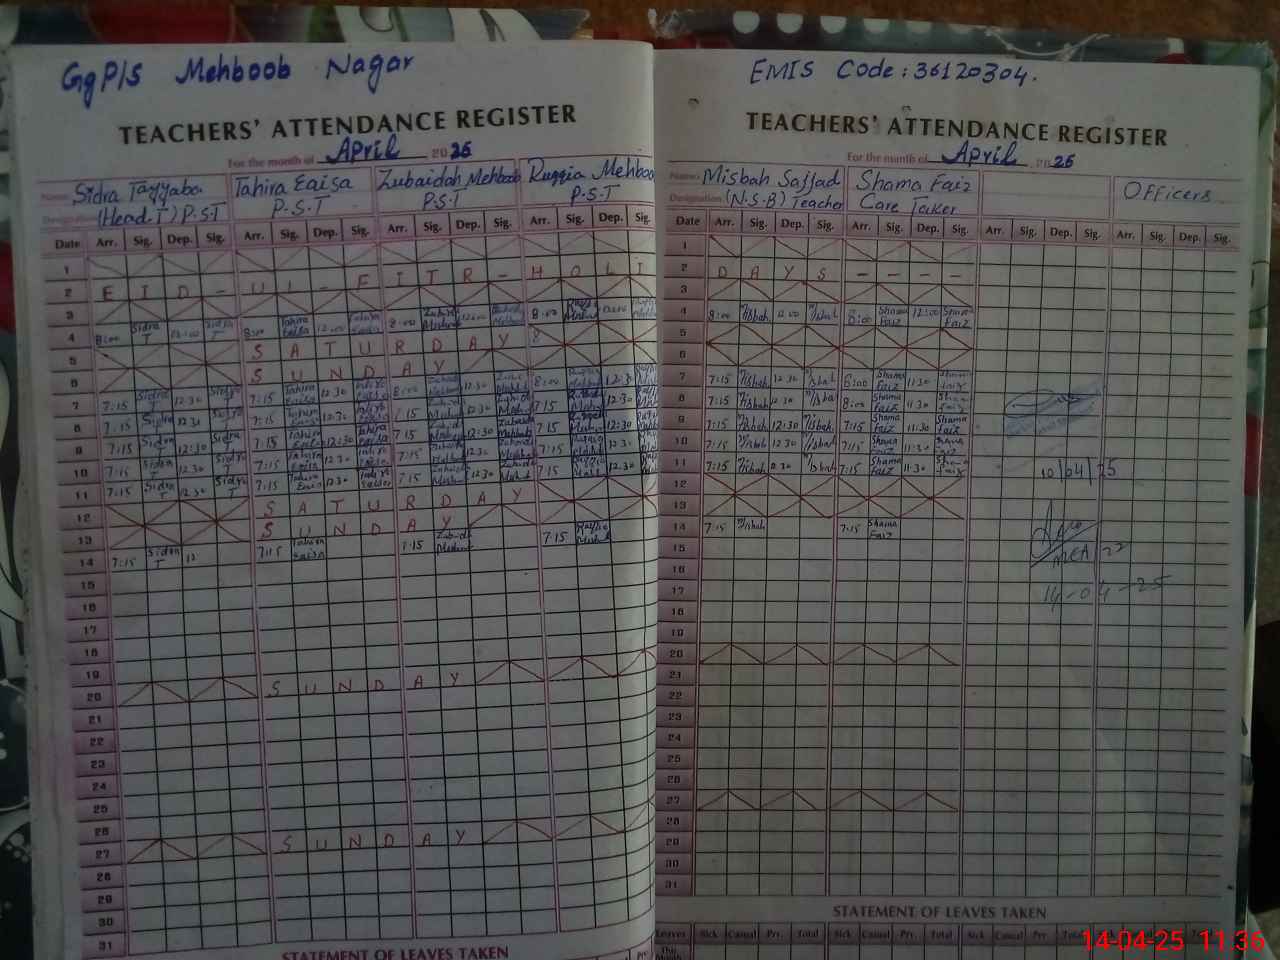 GgP/S Mehboob Nagar
TEACHERS' ATTENDANCE REGISTER
For the month of April 2025
Name: Sidra Tayyaba Tahira Eaisa Zubaidah Mehboob Ruqqia Mehboo
Designation (Head.T) P.S.T P.S.T P.S.T P.S.T
Date Arr. Sig. Dep. Sig. Arr. Sig. Dep. Sig. Arr. Sig. Dep. Sig. Arr. Sig. Dep. Sig.
1
2 EID - UL - FITR - HOLI
3
4 8:00 Sidra T 12:00 Sidra T 8:00 Tahira Eaisa 12:00 Tahira Eaisa 8:00 12:00 8:00 12:00
5 SATURDAY
6 SUNDAY
7 7:15 Sidra T 12:30 Sidra T 7:15 Tahira Eaisa 12:30 8:00 12:30 8:00 12:30
8 7:15 Sidra T 12:30 Sidra T 7:15 Tahira Eaisa 12:30 7:15 12:30 7:15 12:30
9 7:15 Sidra T 12:30 Sidra T 7:15 Tahira Eaisa 12:30 7:15 12:30 7:15 12:30
10 7:15 Sidra T 12:30 Sidra T 7:15 Tahira Eaisa 12:30 7:15 12:30 7:15 12:30
11 7:15 Sidra T 12:30 Sidra T 7:15 Tahira Eaisa 12:30 7:15 12:30 7:15 12:30
12 SATURDAY
13 SUNDAY
14 7:15 Sidra T 12 7:15 Tahira Eaisa 7:15 7:15
15
16
17
18
19
20 SUNDAY
21
22
23
24
25
26
27 SUNDAY
28
29
30
31
STATEMENT OF LEAVES TAKEN
EMIS Code: 36120304.
TEACHERS' ATTENDANCE REGISTER
For the month of April 2025
Name: Misbah Sajjad Shama Faiz Officers
Designation (N.S.B) Teacher Care Taker
Date Arr. Sig. Dep. Sig. Arr. Sig. Dep. Sig. Arr. Sig. Dep. Sig. Arr. Sig. Dep. Sig.
1
2 DAYS - - - -
3
4 8:00 Misbah 12:00 Misbah 8:00 Shama Faiz 12:00 Shama Faiz
5
6
7 7:15 Misbah 12:30 Misbah 8:00 Shama Faiz 11:30 Shama Faiz
8 7:15 Misbah 12:30 Misbah 8:00 Shama Faiz 11:30 Shama Faiz
9 7:15 Misbah 12:30 Misbah 7:15 Shama Faiz 11:30 Shama Faiz
10 7:15 Misbah 12:30 Misbah 7:15 Shama Faiz 11:30 Shama Faiz
11 7:15 Misbah 12:30 Misbah 7:15 Shama Faiz 11:30 Shama Faiz 10/04/25
12
13
14 7:15 Misbah 7:15 Shama Faiz
15 MEA 22
16
17 14-04-25
18
19
20
21
22
23
24
25
26
27
28
29
30
31
STATEMENT OF LEAVES TAKEN
Leaves Sick Casual Prv. Total Sick Casual Prv. Total Sick Casual Prv Total Sick Casual Prv. Total
This Month
14-04-25 11:36